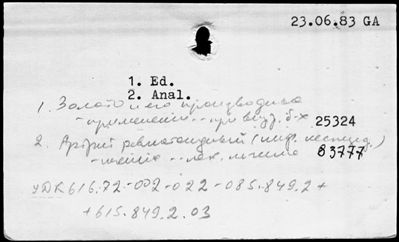 23.06.83 GA
1. Ed.
2. Anal.
1. Золото и его производные
- применение -- при внз. б-х 25324
2. Артрит ревматоидный (инф. неспециф.)
- лечение -- лек. лечение 83777
УДК 616.72-002-022-085.849.2+
+615.849.2.03